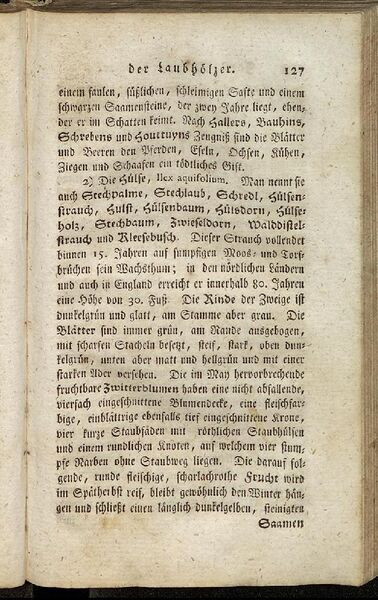 der Laubhölzer. 127
einem faulen, süßlichen, schleimigen Safte und einem
schwarzen Saamensteine, der zwey Jahre liegt, ehen,
der er im Schatten keimt. Nach Hallers, Bauhins,
Schrebers und Houttuyns Zeugniß sind die Blätter
und Beeren den Pferden, Eseln, Ochsen, Kühen,
Ziegen und Schaafen ein tödtliches Gift.
2) Die Hülse, Ilex aquifolium. Man nennt sie
auch Stechpalme, Stechlaub, Schredl, Hülsen-
strauch, Hulst, Hülsenbaum, Hülsdorn, Hülse-
holz, Stechbaum, Zwieseldorn, Walddistel-
strauch und Kleesebusch. Dieser Strauch vollendet
binnen 15. Jahren auf sumpfigen Moos- und Torf-
brüchen sein Wachsthum; in den nördlichen Ländern
und auch in England erreicht er innerhalb 80. Jahren
eine Höhe von 30. Fuß. Die Rinde der Zweige ist
dunkelgrün und glatt, am Stamme aber grau. Die
Blätter sind immer grün, am Rande ausgebogen,
mit scharfen Stacheln besetzt, steif, stark, oben dun-
kelgrün, unten aber matt und hellgrün und mit einer
starken Ader versehen. Die im May hervorbrechende
fruchtbare Zwitterblumen haben eine nicht abfallende,
vierfach eingeschnittene Blumendecke, eine fleischfar-
bige, einblättrige ebenfalls tief eingeschnittene Krone,
vier kurze Staubfäden mit röthlichen Staubhülsen
und einem rundlichen Knoten, auf welchem vier stum-
pfe Narben ohne Staubweg liegen. Die darauf fol-
gende, runde fleischige, scharlachrothe Frucht wird
im Spätherbst reif, bleibt gewöhnlich den Winter hän-
gen und schließt einen länglich dunkelgelben, steinigten
Saamen